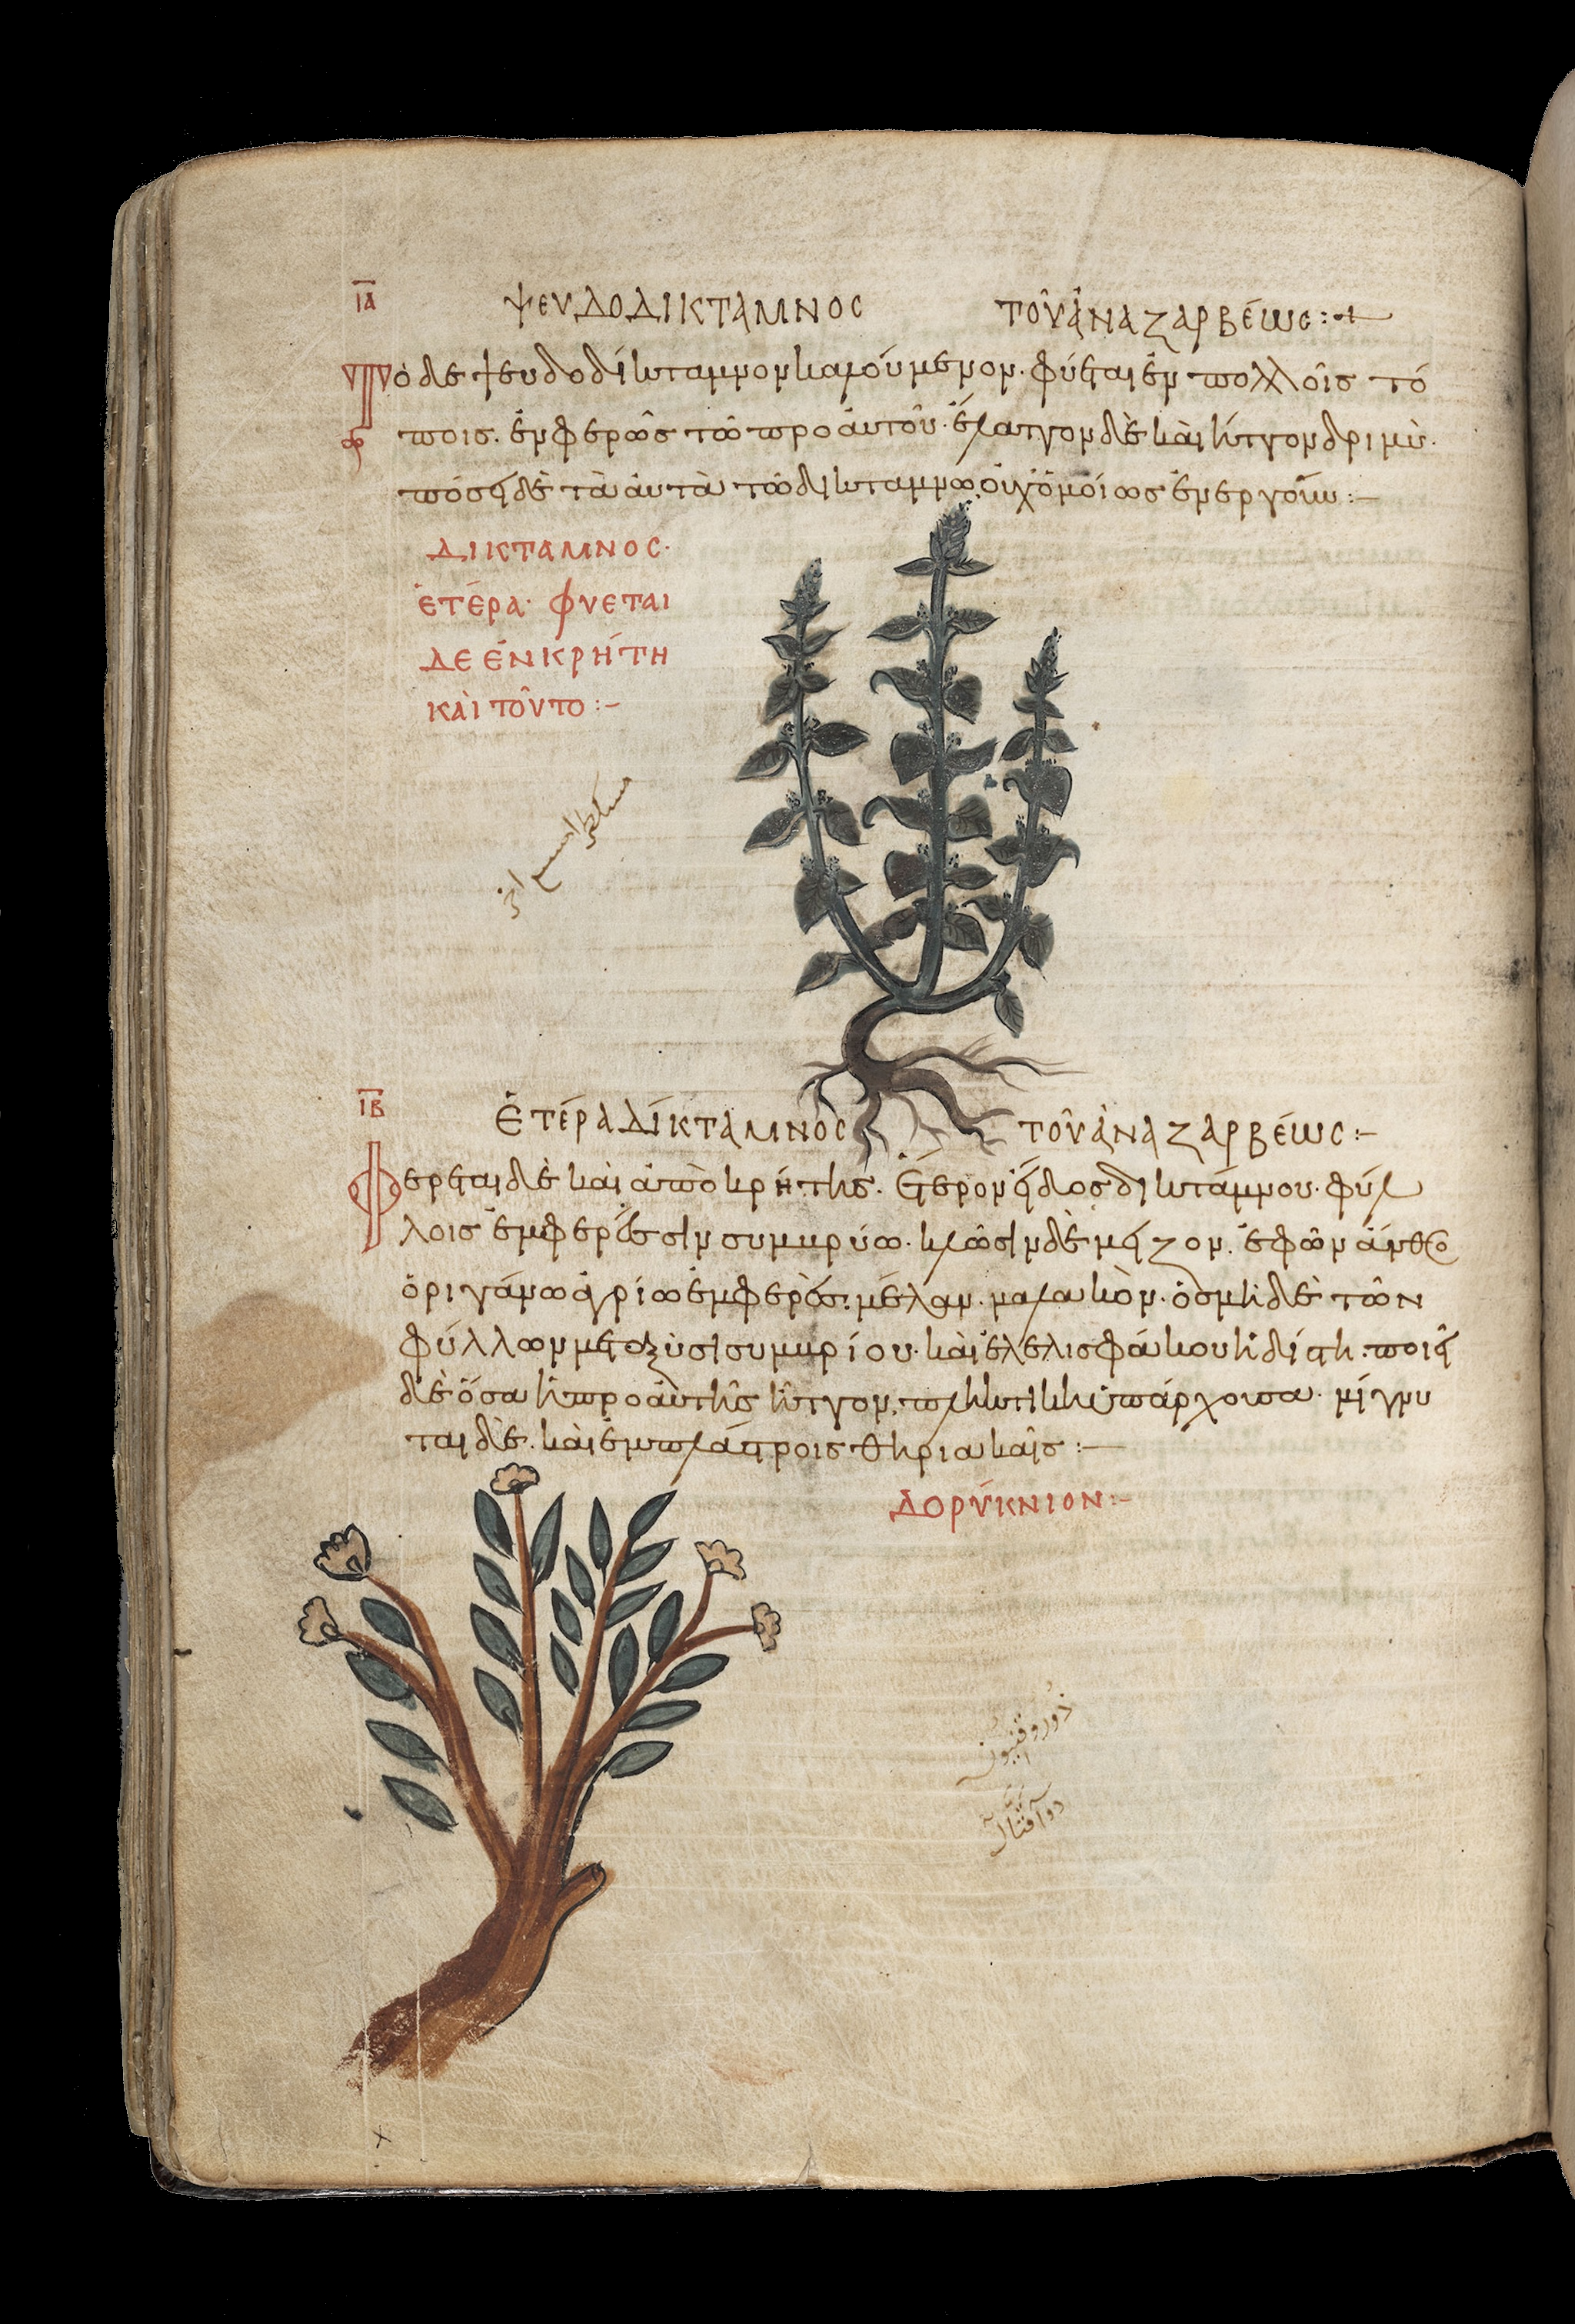 ΙΑ
ΨΕΥΔΟΔΙΚΤΑΜΝΟC ΤΟῦ ἈΝΑΖΑΡΒΈΩC:
Τὸ δε ψευδοδίκταμνον καλούμενον· φύεται ἐν πολλοῖς τό
ποις. ἐνφερῶς τῶ προ ἀυτοῦ· ἔλαττον δὲ κὰι ἧττον δριμὺ·
πόσει δὲ τὰ ἀυτὰ τῶ δικταμνω οὐχ ὁμόίως ἐνεργοῦν:-
ΔΙΚΤΑΜΝΟC·
ἙΤΈΡΑ· ΦΥΕΤΑΙ
ΔΕ ἘΝ ΚΡΉΤΗ
ΚΑῚ ΤΟῦΤΟ:-
ΙΒ
ἙΤΈΡΑ ΔΊΚΤΑΜΝΟC ΤΟῦ ἈΝΑΖΑΡΒΈΩC:-
Φερεται δὲ κὰι ἀπὸ κρήτης. ἕτερον εἶδος δικτάμνου· φύλ
λοις ἐμφερὲς σισυμβρίω· κλῶσιν δὲ μείζον. ἐφῶν ἄνθη
ὀριγάνω ἀγρίω ἐμφερὲς· μέλαν· μαλακὸν· ὀσμὴ δὲ τῶν
φύλλων μεταξὺ σισυμβρίου· κὰι ἐλελισφάκου ἡδίστη· ποιεῖ
δὲ ὅσα ἡ προ ἀυτῆς ἧττον, πληκτικὴ ὑπάρχουσα· μίγνυ
ται δὲ. κὰι ἐμπλάστροις θηριακαῖς:-
ΔΟΡΎΚΝΙΟΝ:-
دوروقنيون